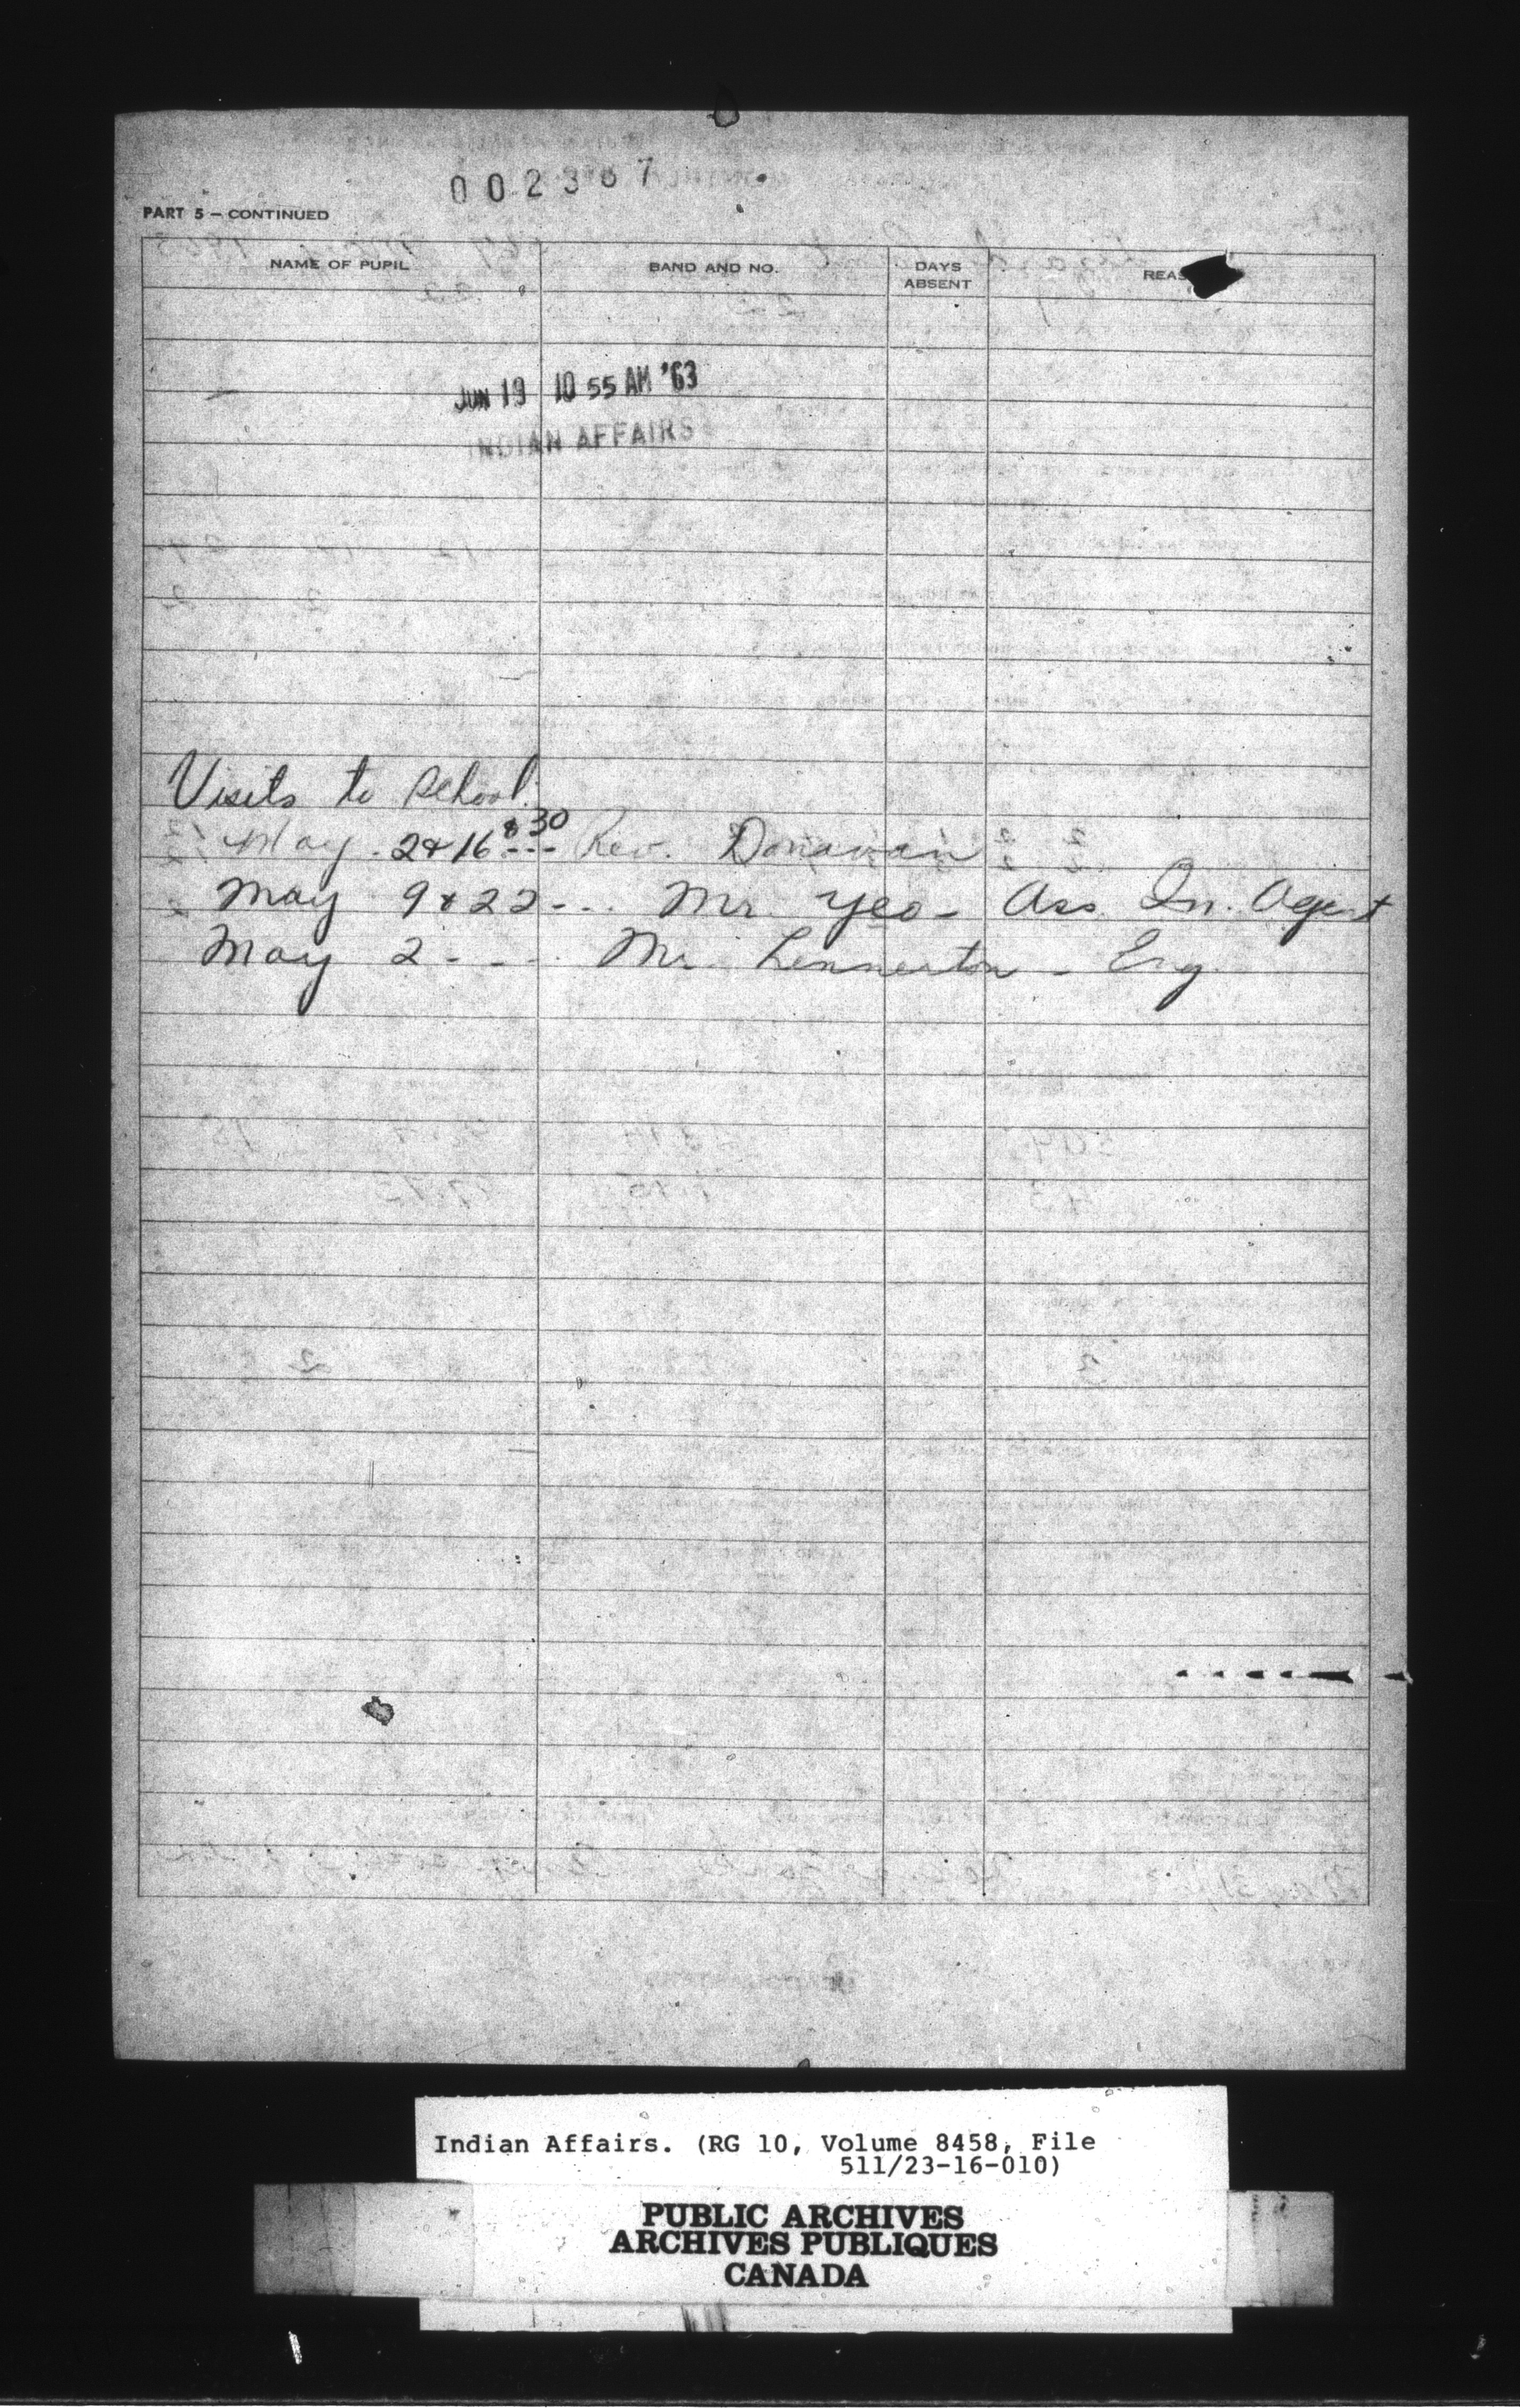 002367
PART 5 – CONTINUED
NAME OF PUPIL BAND AND NO. DAYS ABSENT REAS
JUN 19 10 55 AM '63
INDIAN AFFAIRS
Visits to School.
May 2 & 16 & 30 --- Rev. Donavan
May 9 & 22 --- Mr. Yeo - Ass. In. Agent
May 2 --- Mr. Lennerton - Eng.
Indian Affairs. (RG 10, Volume 8458, File
511/23-16-010)
PUBLIC ARCHIVES
ARCHIVES PUBLIQUES
CANADA